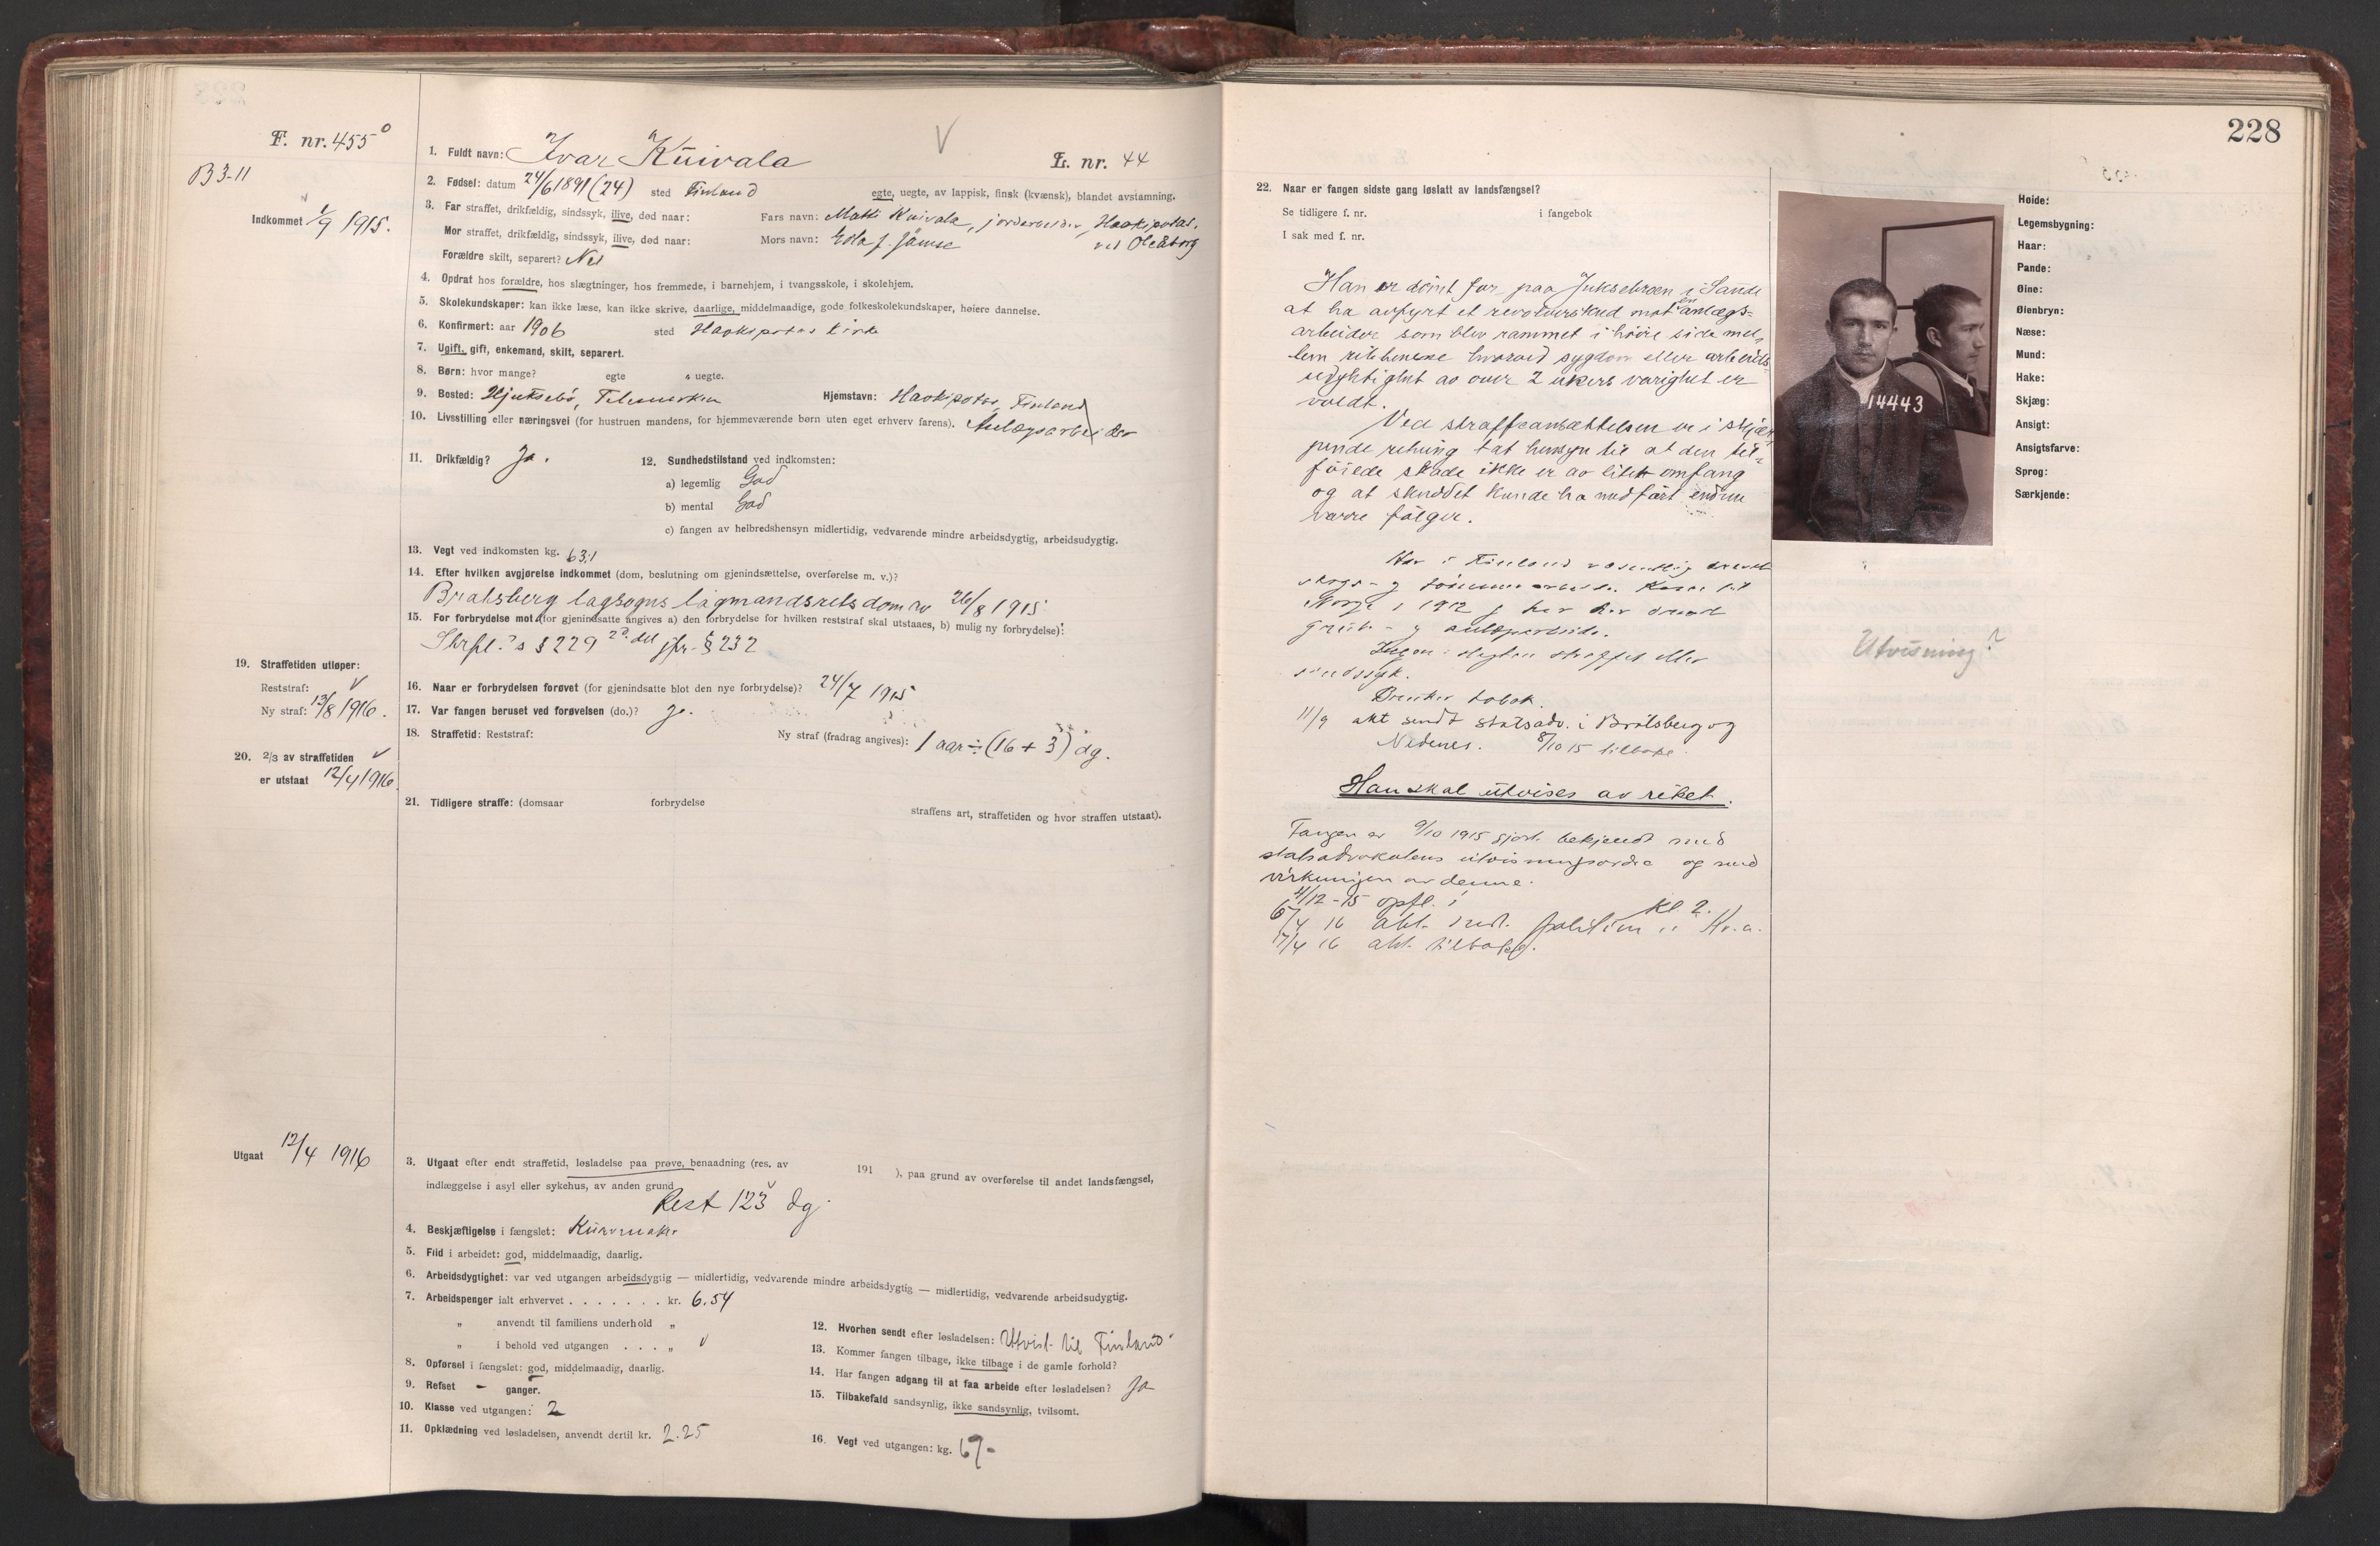 F. nr. 455
B 3-11
Indkommet 1/9 1915.
1. Fuldt navn: Ivar Kuivala
L. nr. 44
2. Fødsel: datum 24/6 1891 (24) sted Finland egte, uegte, av lappisk, finsk (kvænsk), blandet avstamning.
3. Far straffet, drikfældig, sindssyk, ilive, død naar: Fars navn: Matti Kuivala, jordarbeider, Haukipotas,
ved Oleåborg
Mor straffet, drikfældig, sindssyk, ilive, død naar: Mors navn:
Forældre skilt, separert? Nei
4. Opdrat hos forældre, hos slægtninger, hos fremmede, i barnehjem, i tvangsskole, i skolehjem.
5. Skolekundskaper: kan ikke læse, kan ikke skrive, daarlige, middelmaadige, gode folkeskolekundskaper, høiere dannelse.
6. Konfirmert: aar 1906 sted Haokipotas kirke
7. Ugift, gift, enkemand, skilt, separert.
8. Børn: hvor mange? egte „ uegte.
9. Bosted: Hjuksebö, Telemarken Hjemstavn: Haokipotas, Finland
10. Livsstilling eller næringsvei (for hustruen mandens, for hjemmeværende børn uten eget erhverv farens). Anlægsarbeider
11. Drikfældig? Ja.
12. Sundhedstilstand ved indkomsten:
a) legemlig God
b) mental God
c) fangen av helbredshensyn midlertidig, vedvarende mindre arbeidsdygtig, arbeidsudygtig.
13. Vegt ved indkomsten kg. 63.1
14. Efter hvilken avgjørelse indkommet (dom, beslutning om gjenindsættelse, overførelse m. v.)?
Bratsberg lagsogns lagmandsrets dom av 26/8 1915
15. For forbrydelse mot (for gjenindsatte angives a) den forbrydelse for hvilken reststraf skal utstaaes, b) mulig ny forbrydelse):
Strfl.'s § 229 2. del jfr. § 232
16. Naar er forbrydelsen forøvet (for gjenindsatte blot den nye forbrydelse)? 24/7 1915
17. Var fangen beruset ved forøvelsen (do.)? Ja.
18. Straffetid: Reststraf: Ny straf (fradrag angives): 1 aar ÷ (16 + 3) dg.
19. Straffetiden utløper:
Reststraf:
Ny straf: 13/8 1916.
20. 2/3 av straffetiden
er utstaat 12/4 1916
21. Tidligere straffe: (domsaar forbrydelse straffens art, straffetiden og hvor straffen utstaat).
Utgaat 12/4 1916
3. Utgaat efter endt straffetid, løsladelse paa prøve, benaadning (res. av 191 ), paa grund av overførelse til andet landsfængsel,
indlæggelse i asyl eller sykehus, av anden grund
Rest 123 dg.
4. Beskjæftigelse i fængslet: Kurvmaker
5. Flid i arbeidet: god, middelmaadig, daarlig.
6. Arbeidsdygtighet: var ved utgangen arbeidsdygtig — midlertidig, vedvarende mindre arbeidsdygtig — midlertidig, vedvarende arbeidsudygtig.
7. Arbeidspenger ialt erhvervet . . . . . . . kr. 6.54
„ anvendt til familiens underhold „
„ i behold ved utgangen . . . „
8. Opførsel i fængslet: god, middelmaadig, daarlig.
9. Refset – ganger.
10. Klasse ved utgangen: 2
11. Opklædning ved løsladelsen, anvendt dertil kr. 2.25
12. Hvorhen sendt efter løsladelsen: Utvist til Finland
13. Kommer fangen tilbage, ikke tilbage i de gamle forhold?
14. Har fangen adgang til at faa arbeide efter løsladelsen? Ja
15. Tilbakefald sandsynlig, ikke sandsynlig, tvilsomt.
16. Vegt ved utgangen: kg. 67-
228
22. Naar er fangen sidste gang løslatt av landsfængsel?
Se tidligere f. nr. i fangebok
I sak med f. nr.
Han er dömt for paa Juksebroen i Sande
at ha avfyrt et revolverskud mot en anlægs-
arbeider som blev rammet i höire side mel-
lem ribbenene hvorved sygdom eller arbeids-
udyktighet av over 2 ukers varighet er
voldt.
Ved straffeansættelsen er i skjær-
pende retning tat hensyn til at den til-
föiede skade ikke er av litet omfang
og at skuddet kunde ha medfört endnu
værre fölger.
Har i Finland væsentlig drevet
skogs- og tömmerarbeide. Kom til
Norge i 1912 og har her drevet
grube- og anlægsarbeide.
Ingen i slegten straffet eller
sindssyk.
Bruker tobak.
11/9 akt sendt statsadv. i Bratsberg og
Nedenes. 8/10 15 tilbake.
Han skal utvises av riket.
Fangen er 9/10 1915 gjort bekjendt med
statsadvokatens utvisningsordre og med
virkningen av denne.
4/12-15 opfl. i kl. 2.
6/4 16 akt. sendt politim. i Kr.a.
17/4 16 akt. tilbake.
14443
Høide:
Legemsbygning:
Haar:
Pande:
Øine:
Øienbryn:
Næse:
Mund:
Hake:
Skjæg:
Ansigt:
Ansigtsfarve:
Sprog:
Særkjende:
Utvisning?